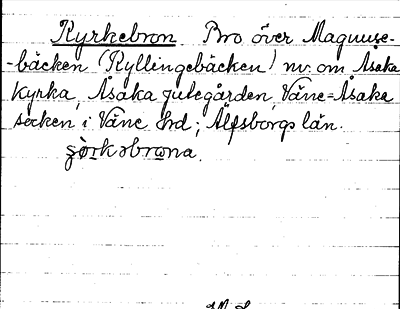 Kyrkebron Bro över Magnuse-
-bäcken (Kyllingebäcken) nv. om Åsaka
Kyrka, Åsaka Julegården, Väne=Åsaka
socken i Väne hrd; Älfsborgs län.